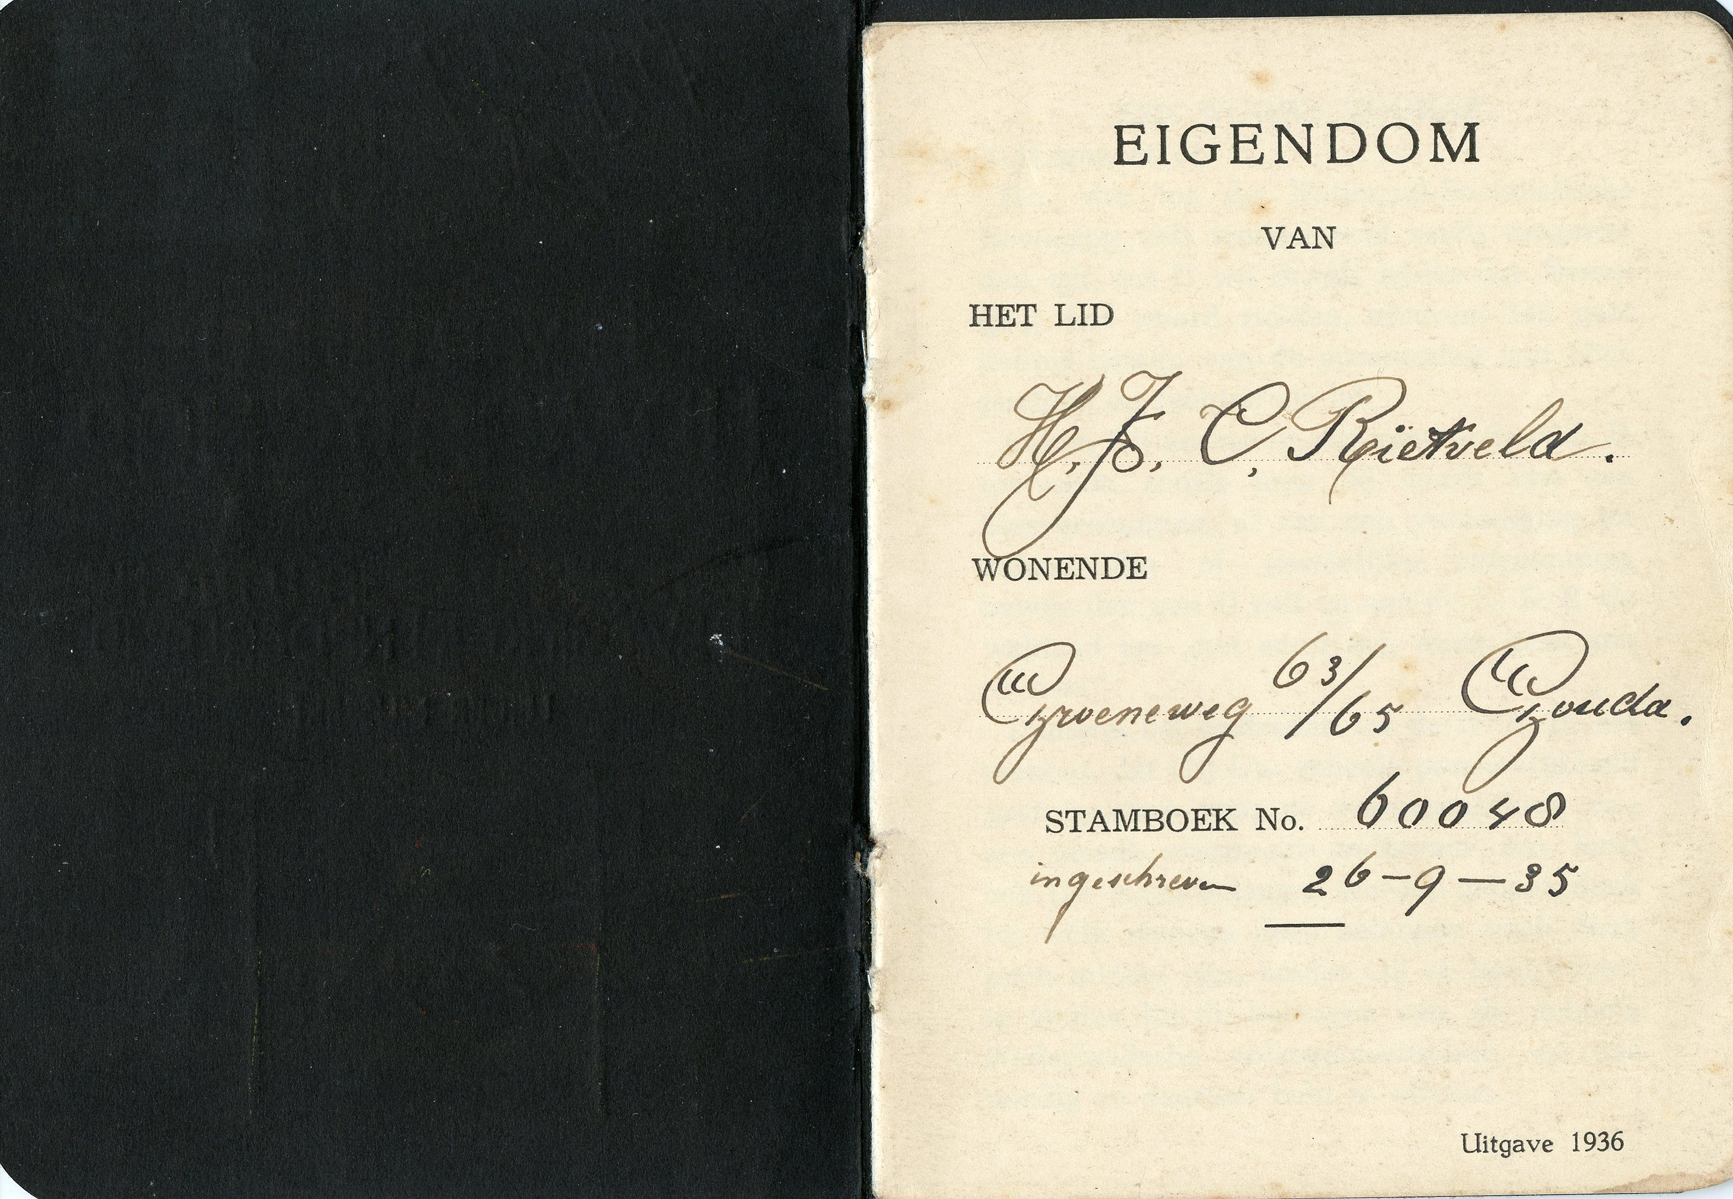 EIGENDOM
VAN
HET LID
H. J. C. Rietveld.
WONENDE
Groeneweg 63/65 Gouda.
STAMBOEK No. 60048
ingeschreven 26-9-35
Uitgave 1936